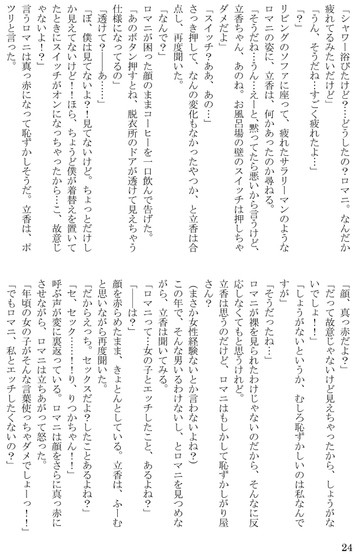 「シャワー浴びたけど?…どうしたの?ロマニ。なんだか
疲れてるみたいだけど」
「うん、そうだね…すごく疲れたよ…」
「?」
リビングのソファに座って、疲れたサラリーマンのような
ロマニの姿に、立香は、何かあったのか尋ねる。
「そうだね…うん…えーと、黙ってたら悪いから言うけど、
立香ちゃん、あのね。お風呂場の壁のスイッチは押しちゃ
ダメだよ」
「スイッチ?ああ、あの…」
さっき押して、なんの変化もなかったやつか、と立香は合
点し、再度聞いた。
「なんで?」
ロマニが困った顔のままコーヒーを一口飲んで告げた。
「あのボタン押すとね、脱衣所のドアが透けて見えちゃう
仕様になってるの」
「透けて?――あ……」
「ぼ、僕は見てないよ?!見てないけど。ちょっとだけし
か見えてないけど!!ほら、ちょうど僕が着替えを置いて
たときにスイッチがオンになっちゃったから…こ、故意じ
ゃないよ?!」
言うロマニは真っ赤になって恥ずかしそうだ。立香は、ポ
ツリと言った。
「顔、真っ赤だよ?」
「だって故意じゃないけど見えちゃったから、しょうがな
いでしょ!!」
「しょうがないというか、むしろ恥ずかしいのは私なんで
すが」
「そうだったね…」
ロマニが裸を見られたわけじゃないのだから、そんなに反
応しなくてもと思うけれど。
立香は思うのだけど、ロマニはもしかして恥ずかしがり屋
さん?
(まさか女性経験ないとか言わないよね?)
この年で、そんな男もいるわけないし、とロマニを見つめな
がら、立香は聞いてみる。
「ロマニって…女の子とエッチしたこと、あるよね?」
「――は?」
顔を赤らめたまま、きょとんとしている。立香は、ふーむ
と思いながら再度聞いた。
「だからえっち。セックスだよ?したことあるよね?」
「セ、セック……!り、りつかちゃん!!」
呼ぶ声が変に裏返っている。ロマニは顔をさらに真っ赤に
させながら、ロマニは立ちあがって怒った。
「年頃の女の子がそんな言葉使っちゃダメでしょーっ!!」
「でもロマニ、私とエッチしたくないの?」
24